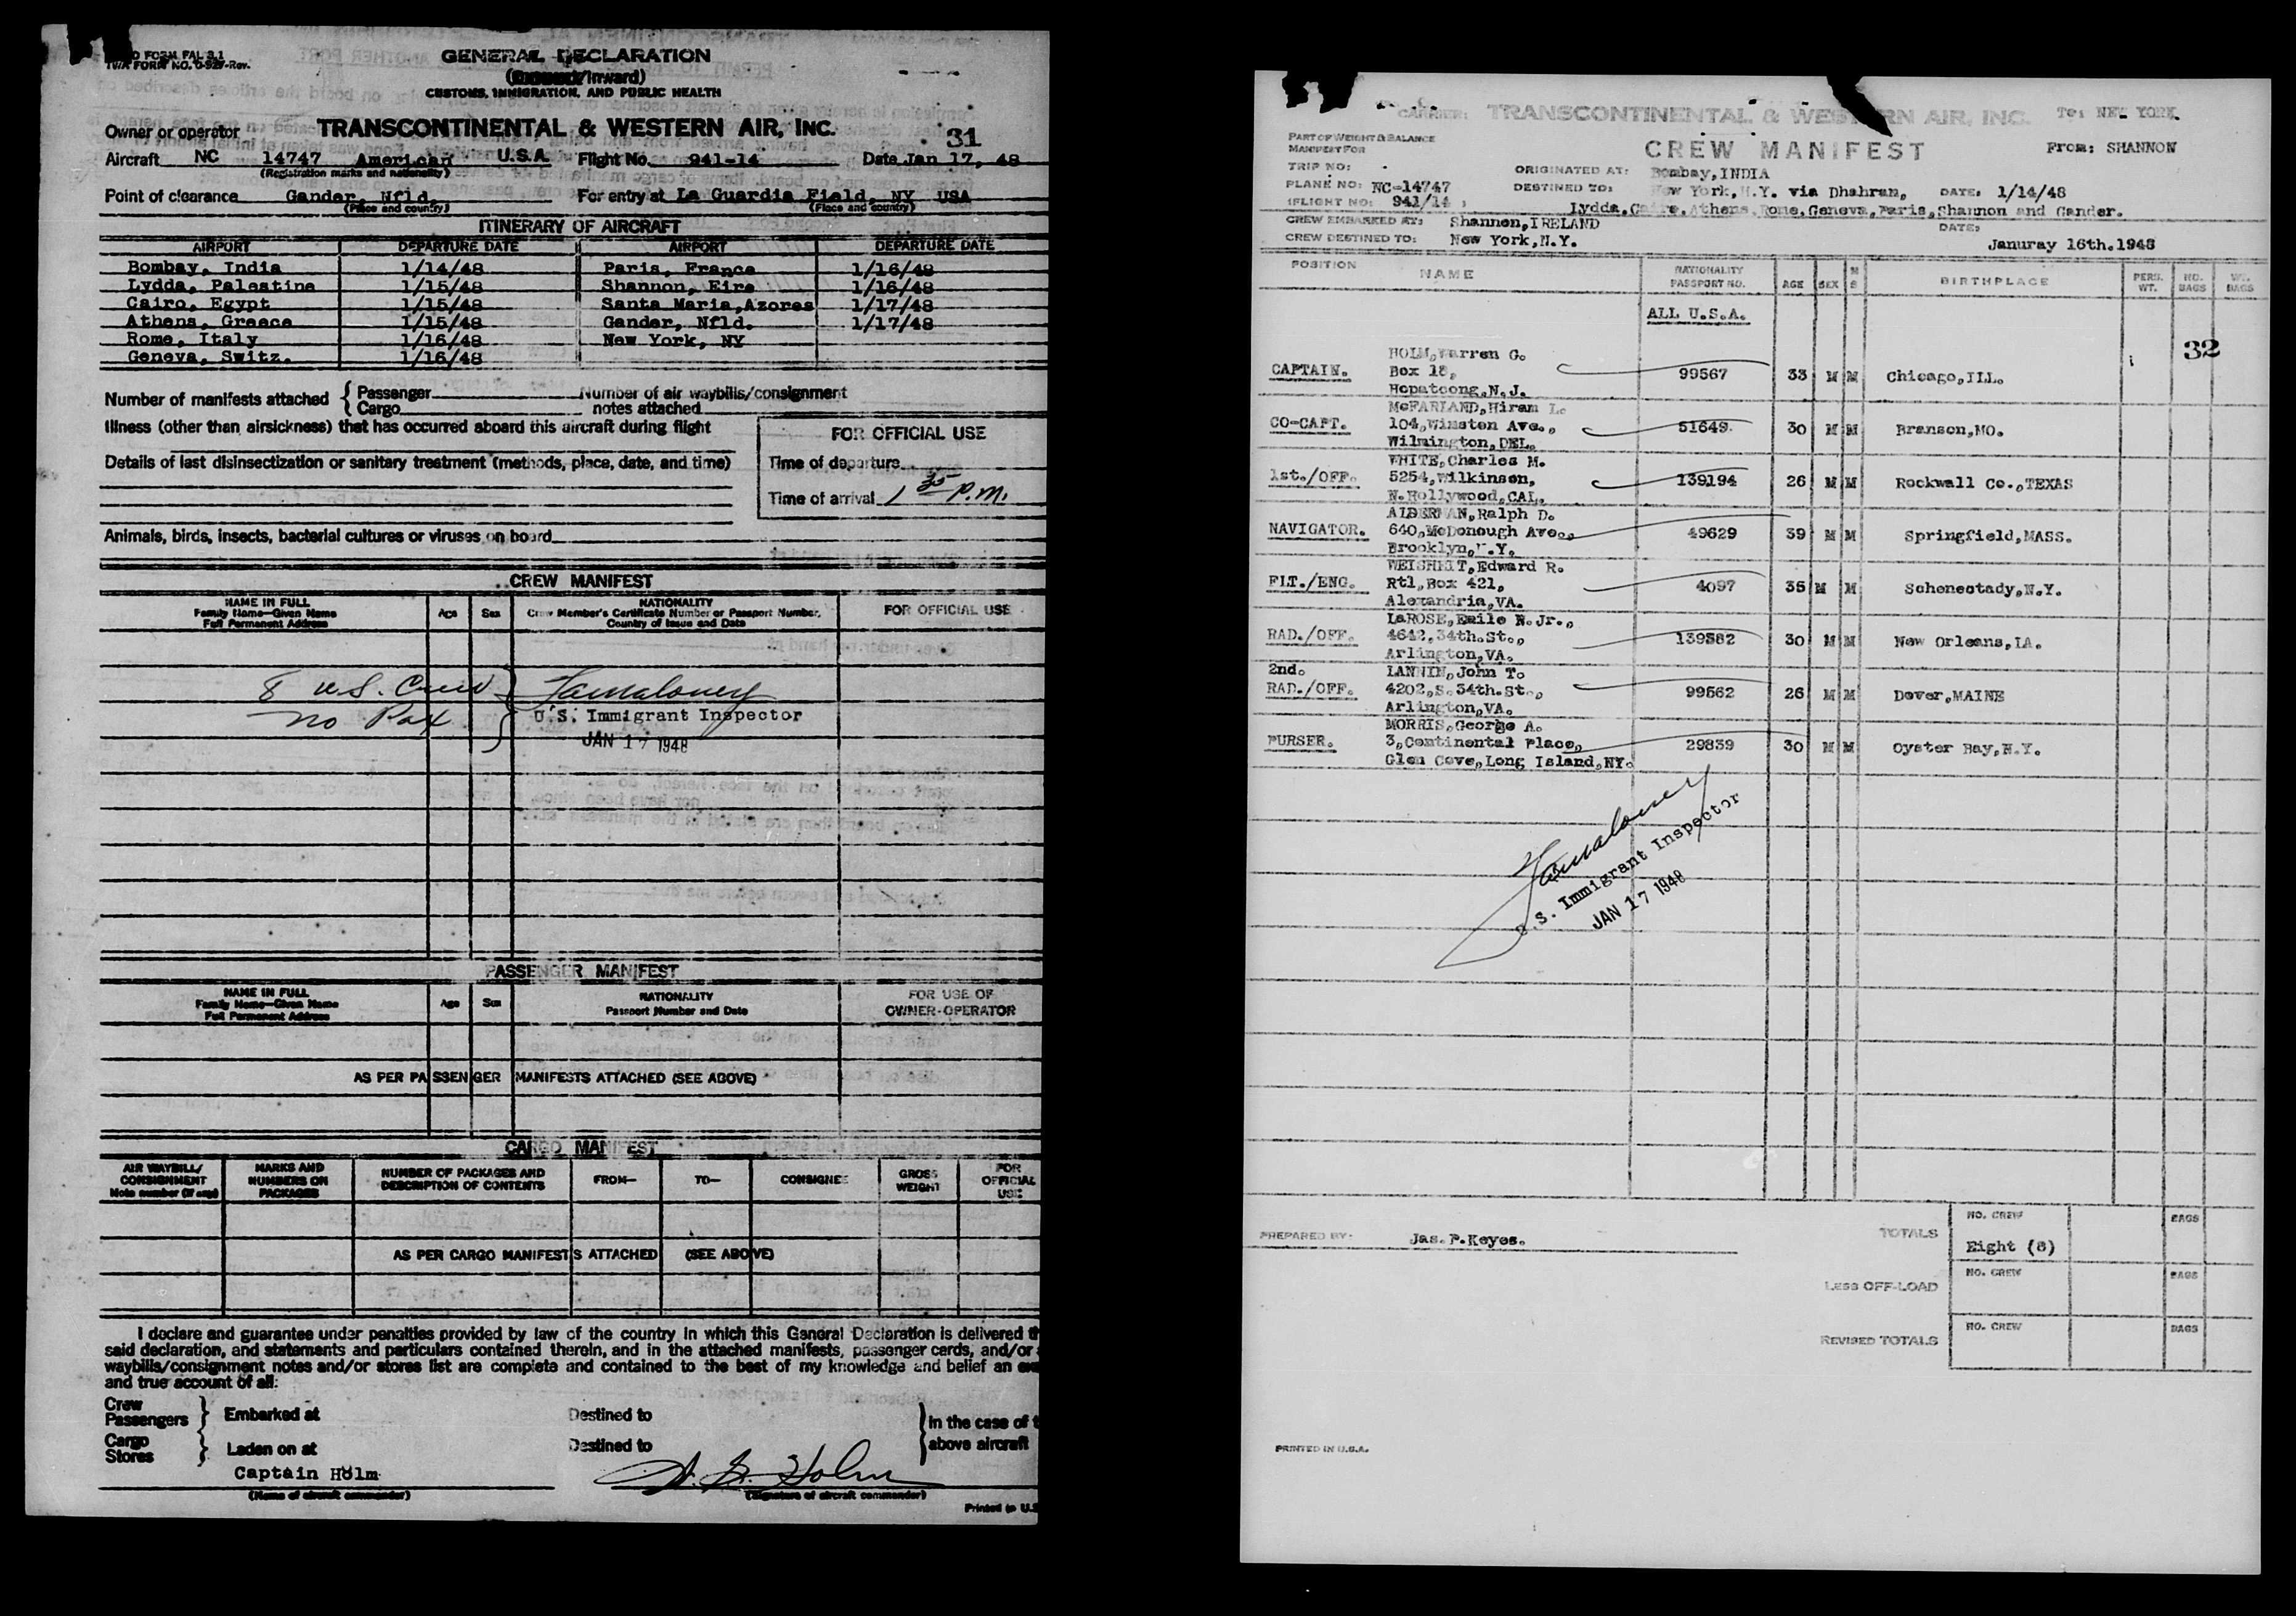 FORM FAL 3.1
TWA FORM NO. O-927-Rev.
GENERAL DECLARATION
(/Inward)
CUSTOMS, IMMIGRATION, AND PUBLIC HEALTH
Owner or operator TRANSCONTINENTAL & WESTERN AIR, INC.
31
Aircraft NC 14747 American U.S.A. Flight No. 941-14 Date Jan 17, 48
(Registration marks and nationality)
Point of clearance Gander, Nfld. For entry at La Guardia Field, NY USA
(Place and country) (Place and country)
ITINERARY OF AIRCRAFT
AIRPORT DEPARTURE DATE AIRPORT DEPARTURE DATE
Bombay, India 1/14/48 Paris, France 1/16/48
Lydda, Palestine 1/15/48 Shannon, Eire 1/16/48
Cairo, Egypt 1/15/48 Santa Maria,Azores 1/17/48
Athens, Greece 1/15/48 Gander, Nfld. 1/17/48
Rome, Italy 1/16/48 New York, NY
Geneva, Switz. 1/16/48
Number of manifests attached { Passenger Number of air waybills/consignment
Cargo notes attached
Illness (other than airsickness) that has occurred aboard this aircraft during flight
FOR OFFICIAL USE
Details of last disinsectization or sanitary treatment (methods, place, date, and time)
Time of departure
Time of arrival 1 35 P.M.
Animals, birds, insects, bacterial cultures or viruses on board
CREW MANIFEST
NAME IN FULL
Family Name—Given Name
Full Permanent Address
Age Sex
NATIONALITY
Crew Member's Certificate Number or Passport Number,
Country of Issue and Date
FOR OFFICIAL USE
8 U.S. Crew
no Pax
U.S. Immigrant Inspector
JAN 17 1948
PASSENGER MANIFEST
NAME IN FULL
Family Name—Given Name
Full Permanent Address
Age Sex
NATIONALITY
Passport Number and Date
FOR USE OF
OWNER-OPERATOR
AS PER PASSENGER MANIFESTS ATTACHED (SEE ABOVE)
CARGO MANIFEST
AIR WAYBILL/
CONSIGNMENT
Note number (if any)
MARKS AND
NUMBERS ON
PACKAGES
NUMBER OF PACKAGES AND
DESCRIPTION OF CONTENTS
FROM—
TO—
CONSIGNEE
GROSS
WEIGHT
FOR
OFFICIAL
USE
AS PER CARGO MANIFESTS ATTACHED (SEE ABOVE)
I declare and guarantee under penalties provided by law of the country in which this General Declaration is delivered
said declaration, and statements and particulars contained therein, and in the attached manifests, passenger cards, and/or
waybills/consignment notes and/or stores list are complete and contained to the best of my knowledge and belief an
and true account of all:
Crew
Passengers } Embarked at Destined to
Cargo
Stores } Laden on at Destined to
In the case of
above aircraft
Captain Holm W. G. Holm
(Name of aircraft commander) (Signature of aircraft commander)
Printed in U.S
CARRIER: TRANSCONTINENTAL & WESTERN AIR, INC. To: NEW YORK.
PART OF WEIGHT & BALANCE
MANIFEST FOR
CREW MANIFEST From: SHANNON
TRIP NO: ORIGINATED AT: Bombay,INDIA
PLANE NO: NC-14747 DESTINED TO: New York,N.Y. via Dhahran, DATE: 1/14/48
FLIGHT NO: 941/14 Lydda,Cairo,Athens,Rome,Geneva,Paris,Shannon and Gander.
CREW EMBARKED AT: Shannon,IRELAND DATE:
CREW DESTINED TO: New York,N.Y. Januray 16th.1948
POSITION NAME NATIONALITY PASSPORT NO. AGE SEX M S BIRTHPLACE PERS. WT. NO. BAGS WT. BAGS
ALL U.S.A.
32
HOLM,Warren G.
CAPTAIN. Box 18, 99567 33 M M Chicago,ILL.
Hopatcong,N.J.
McFARLAND,Hiram L.
CO-CAPT. 104,Winston Ave., 51649. 30 M M Branson,MO.
Wilmington,DEL.
WHITE,Charles M.
1st./OFF. 5254,Wilkinson, 139194 26 M M Rockwall Co.,TEXAS
N.Hollywood,CAL.
ALDERMAN,Ralph D.
NAVIGATOR. 640,McDonough Ave., 49629 39 M M Springfield,MASS.
Brooklyn,N.Y.
WEISHEIT,Edward R.
FLT./ENG. Rt1,Box 421, 4097 35 M M Schenectady,N.Y.
Alexandria,VA.
LaROSE,Emile N.Jr.,
RAD./OFF. 4642,34th.St., 139582 30 M M New Orleans,LA.
Arlington,VA.
2nd. LANNIN,John T.
RAD./OFF. 4202,S.34th.St., 99562 26 M M Dover,MAINE
Arlington,VA.
MORRIS,George A.
PURSER. 3,Continental Place, 29839 30 M M Oyster Bay,N.Y.
Glen Cove,Long Island,NY.
U.S. Immigrant Inspector
JAN 17 1948
PREPARED BY: Jas.P.Keyes.
TOTALS NO. CREW BAGS
Eight (8)
LESS OFF-LOAD NO. CREW BAGS
REVISED TOTALS NO. CREW BAGS
PRINTED IN U.S.A.